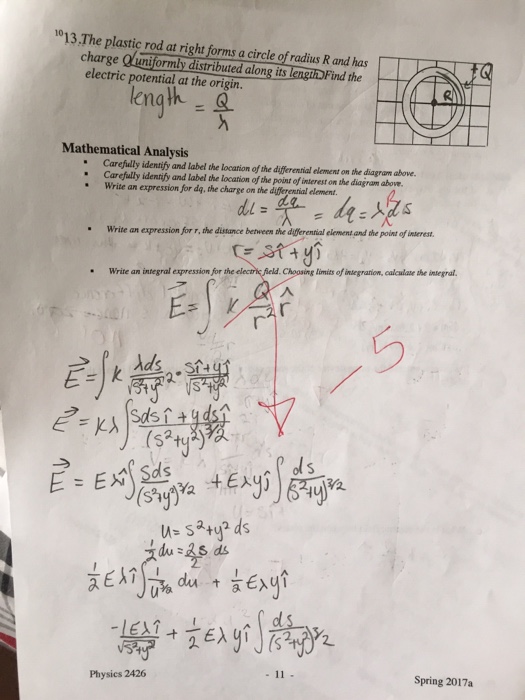 ¹⁰13.The plastic rod at right forms a circle of radius R and has
charge Q uniformly distributed along its length. Find the
electric potential at the origin.
+Q
R
length = Q/λ
Mathematical Analysis
• Carefully identify and label the location of the differential element on the diagram above.
• Carefully identify and label the location of the point of interest on the diagram above.
• Write an expression for dq, the charge on the differential element.
dL = dq/λ = dq = λds
R
• Write an expression for r, the distance between the differential element and the point of interest.
r = sî + yĵ
• Write an integral expression for the electric field. Choosing limits of integration, calculate the integral.
E⃗ = ∫ K Q/r² r̂
-5
E⃗ = ∫ K λds/√(s²+y²)² · sî+yĵ/√(s²+y²)
E⃗ = Kλ ∫ sds î + yds ĵ/(s²+y²)^3/2
E⃗ = Eλî ∫ sds/(s²+y²)^3/2 + Eλyĵ ∫ ds/(s²+y²)^3/2
u = s²+y² ds
½ du = 2s ds/2
½ Eλî ∫ 1/u^3/2 du + ½ Eλyĵ
-1Eλî/√(s²+y²) + ½ Eλyĵ ∫ ds/(s²+y²)^3/2
Physics 2426
- 11 -
Spring 2017a